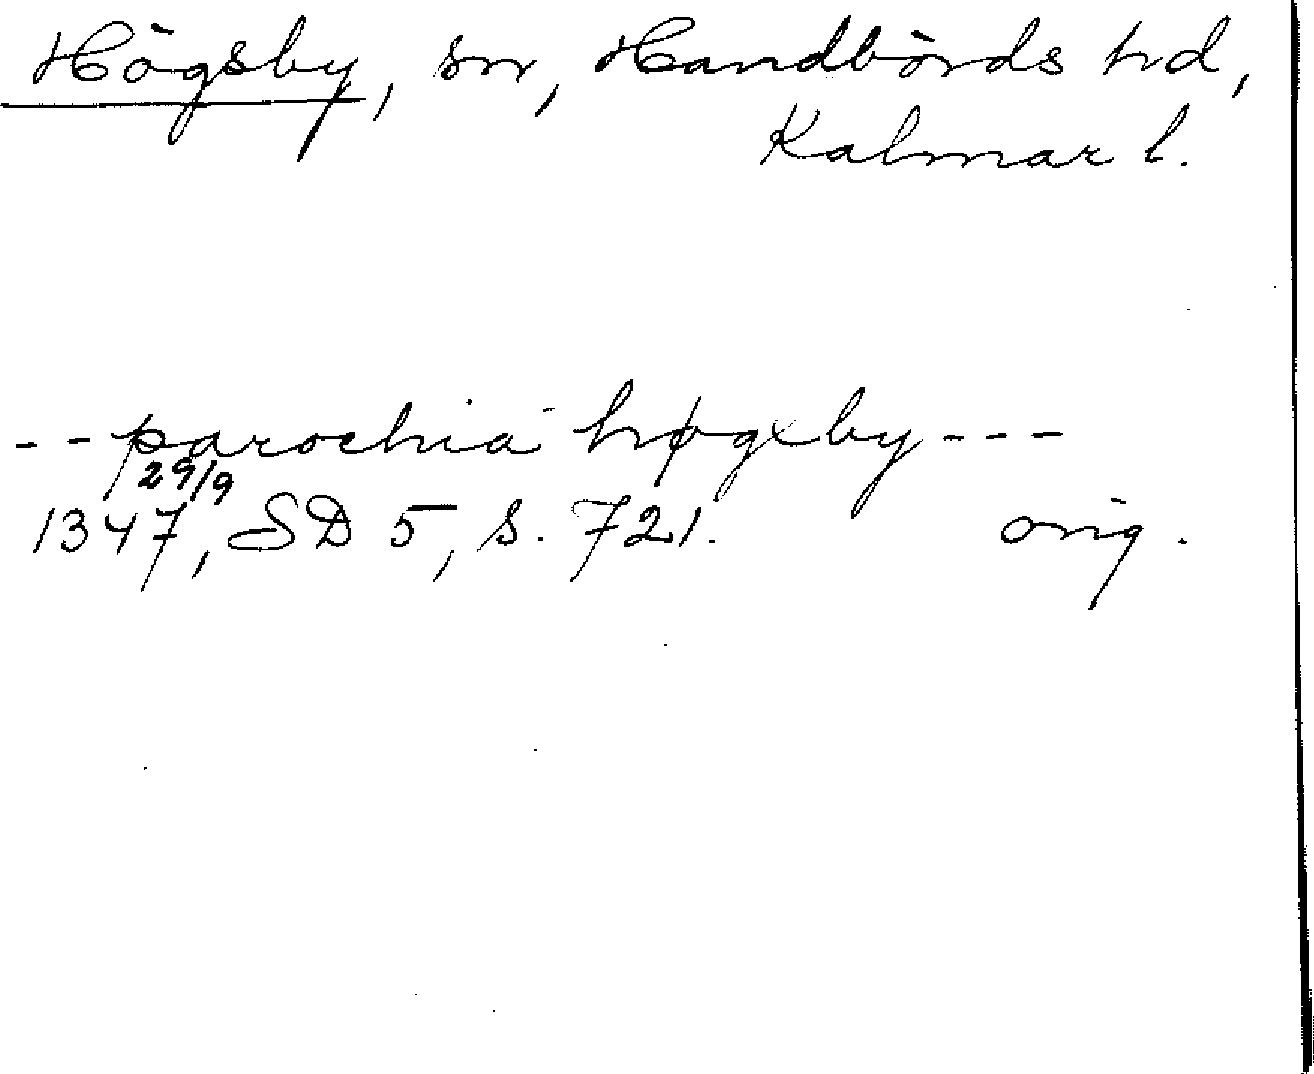 Högsby, sn, Handbörds hd,
Kalmar l.
-- parochia høgxby ---
29/9
1347, SD 5, s. 721. orig.